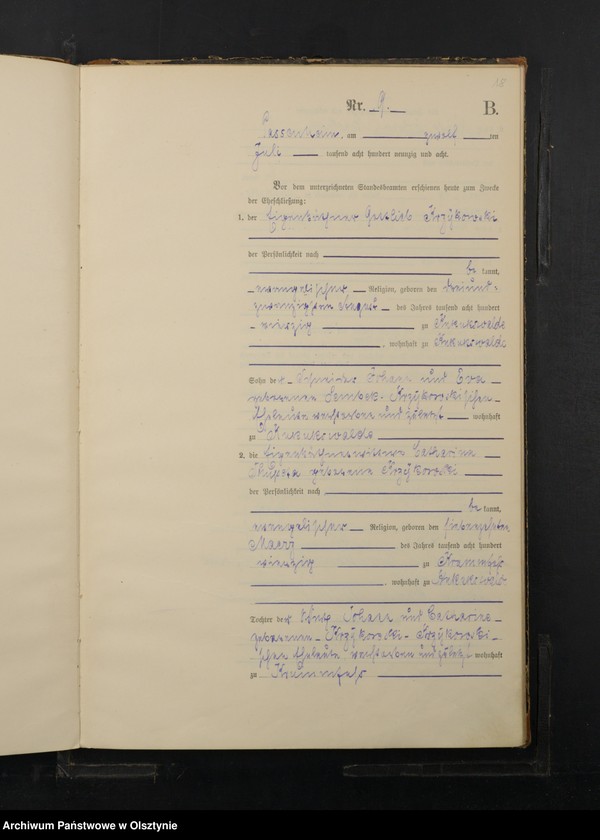 18
Nr. 9. B.
Passenheim, am zwoelf ten
Juli tausend acht hundert neunzig und acht.
Vor dem unterzeichneten Standesbeamten erschienen heute zum Zwecke
der Eheschließung:
1. der Eigenkäthner Gottlieb Krzykowski
der Persönlichkeit nach
be kannt,
evangelischer Religion, geboren den dreiund-
zwanzigsten August des Jahres tausend acht hundert
vierzig zu Kukukswalde
, wohnhaft zu Kukukswalde
Sohn der Johann und Eva
geborenen Krzykowskischen
Eheleute verstorben und zuletzt wohnhaft
zu Kukukswalde
2. die Eigenkäthnerwittwe Catharina
geborene Krzykowski
der Persönlichkeit nach
be kannt,
evangelischer Religion, geboren den siebenzehnten
Maerz des Jahres tausend acht hundert
vierzig zu
, wohnhaft zu Kukukswalde
Tochter der Johann und Catharine
geborenen Krzykowski- Krzykowski-
schen Eheleute verstorben und zuletzt wohnhaft
zu
Archiwum Państwowe w Olsztynie